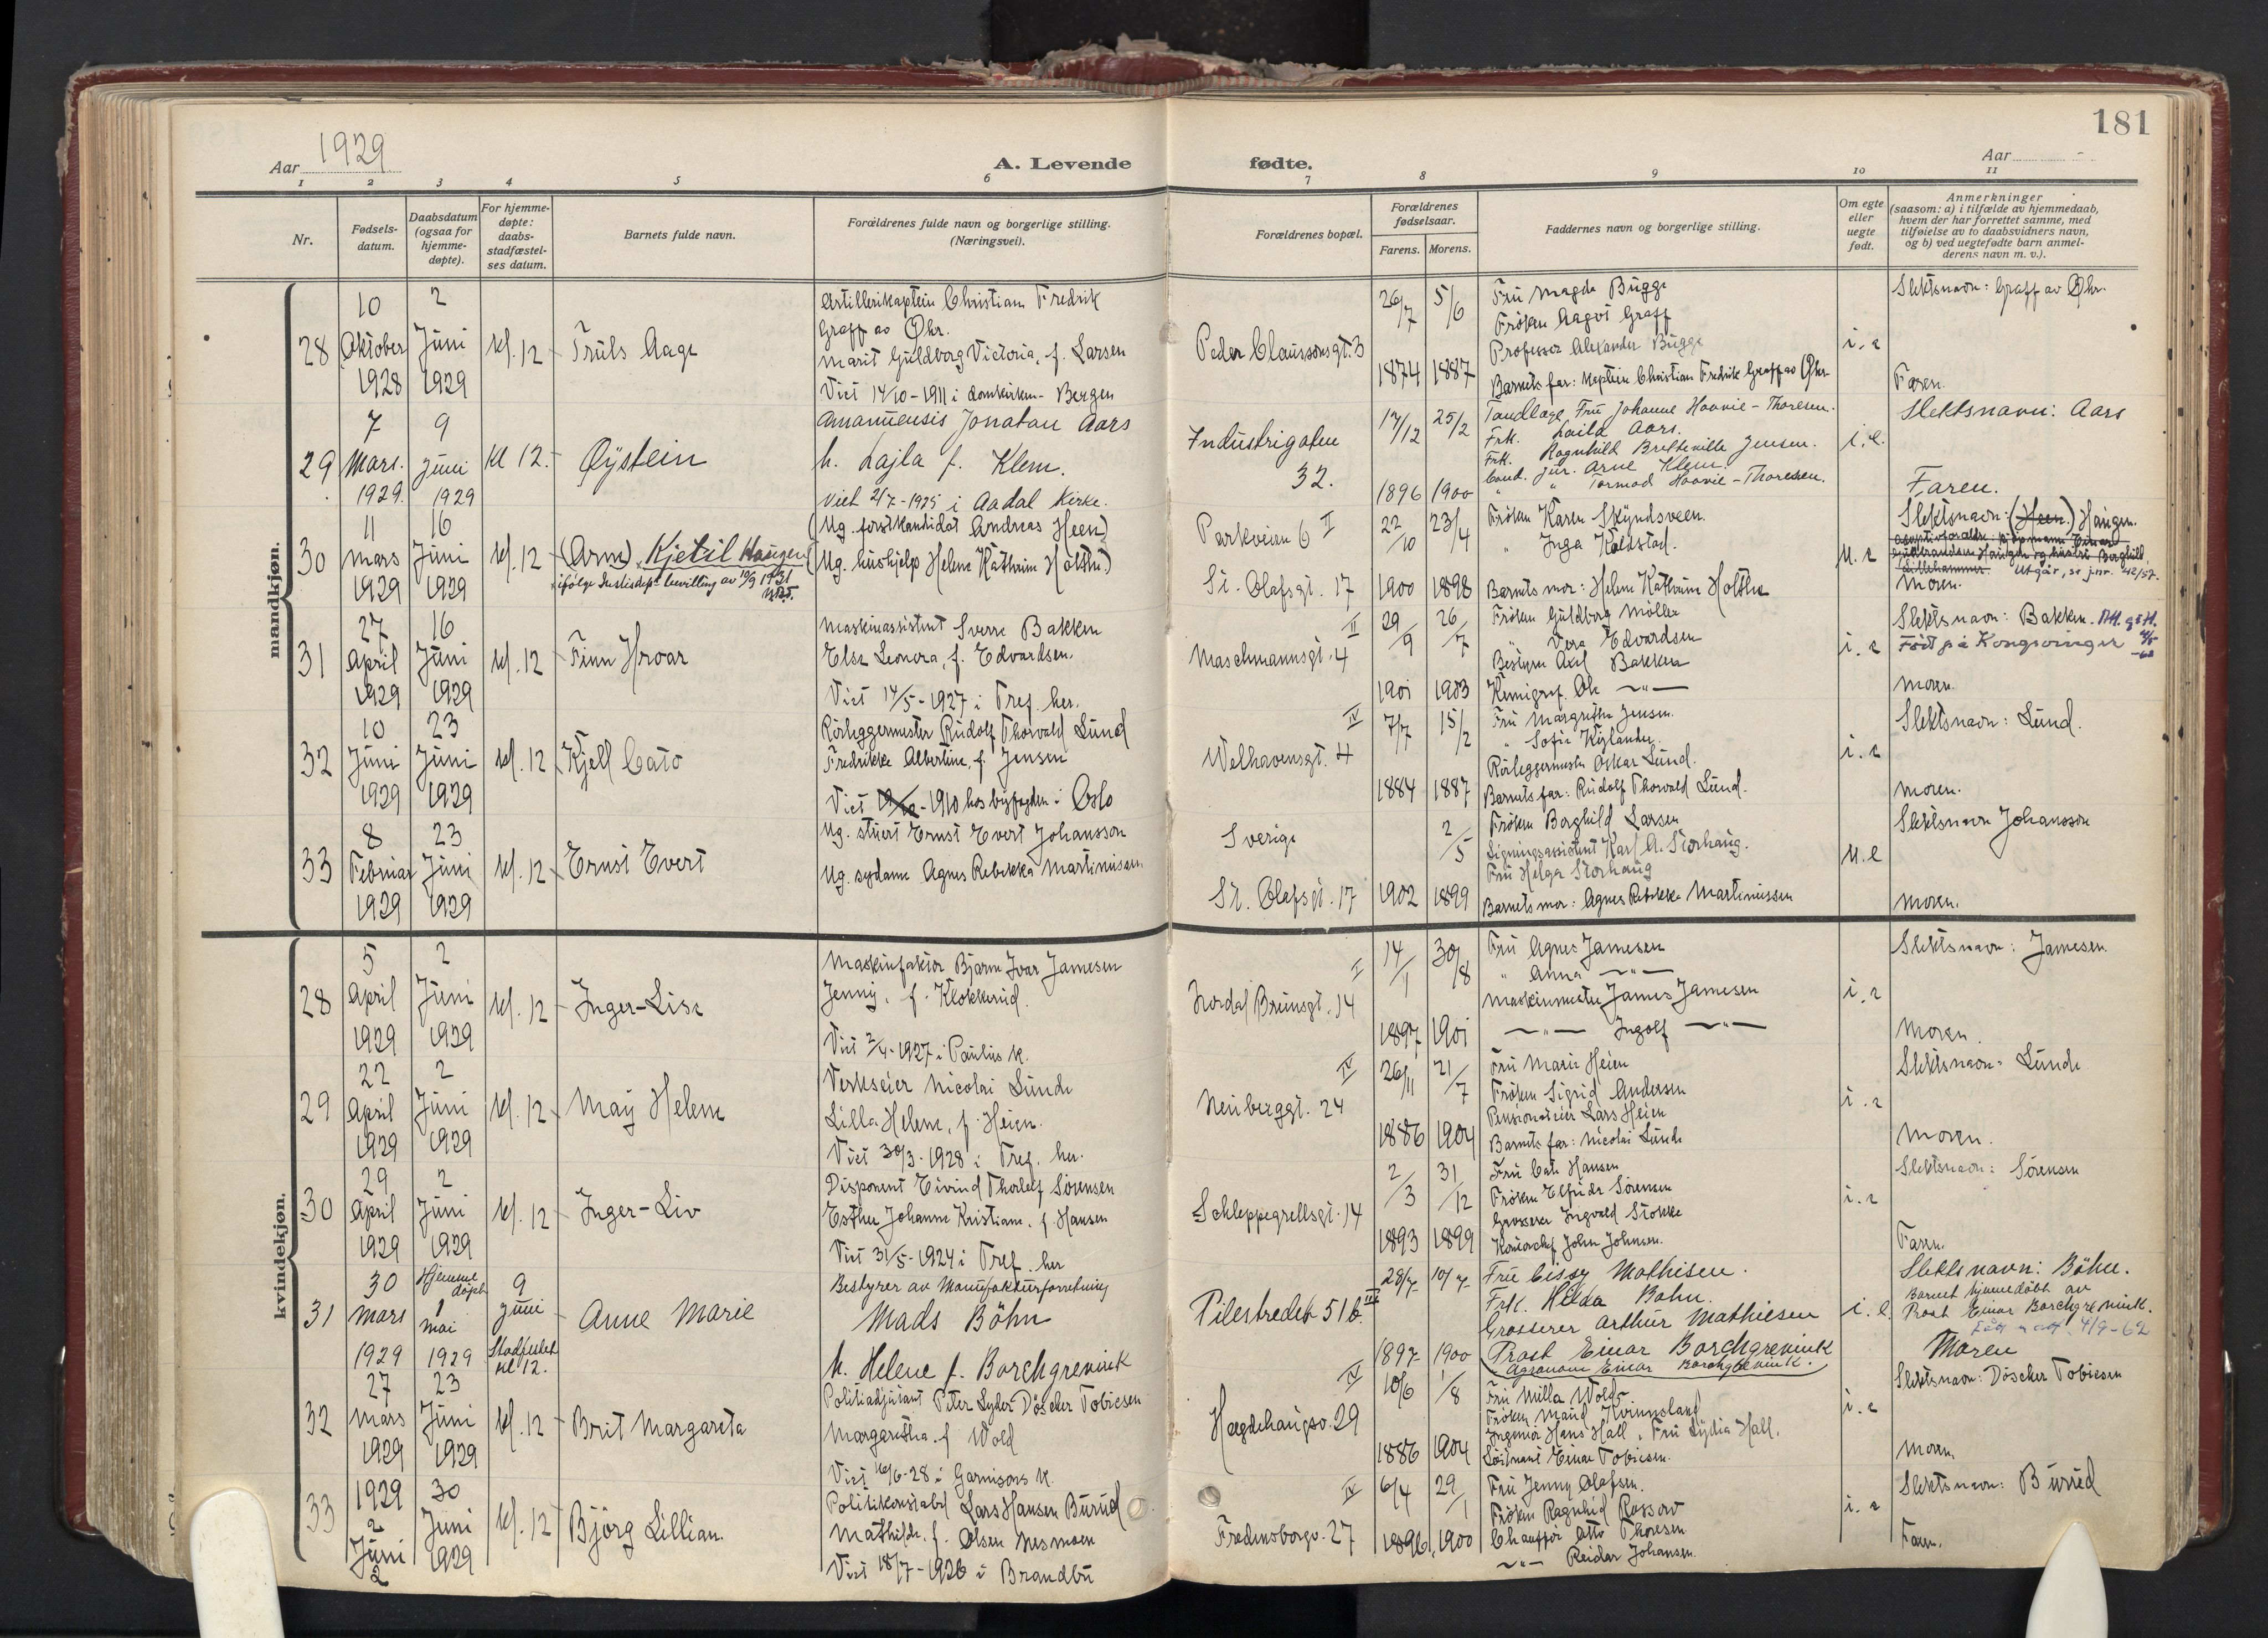 181
Aar 1929
A. Levende fødte.
Aar
1 2 3 4 5 6 7 8 9 10 11
Nr.
Fødsels-
datum.
Daabsdatum
(ogsaa for
hjemme-
døpte).
For hjemme-
døpte:
daabs-
stadfæstel-
ses datum.
Barnets fulde navn.
Forældrenes fulde navn og borgerlige stilling.
(Næringsvei).
Forældrenes bopæl.
Forældrenes
fødselsaar.
Farens. Morens.
Faddernes navn og borgerlige stilling.
Om egte
eller
uegte
født.
Anmerkninger
(saasom: a) i tilfælde av hjemmedaab,
hvem der har forrettet samme, med
tilføielse av to daabsvidners navn,
og b) ved uegtefødte barn anmel-
derens navn m. v.).
mandkjøn.
28
10
Oktober
1928
2
Juni
1929
kl. 12
Truls Aage
Artillerikaptein Christian Fredrik
Graff av Øhr.
Marit Guldborg Victoria, f. Larsen
Viet 14/10-1911 i domkirken- Bergen
Peder Claussonsgt. 3
26/7 1874
5/6 1887
Fru Magda Bugge
Frøken Aagot Graff
Professor Alexander Bugge
Barnets far: Kaptein Christian Fredrik Graff av Øhr
i. e
Slektsnavn: Graff av Øhr.
Faren.
29
7
Mars.
1929.
9
juni
1929
kl 12.
Øystein
Amanuensis Jonatan Aars
h. Lajla f. Klem.
Viet 2/7-1925 i Aadal Kirke.
Industrigaten
32.
17/12 1896
25/2 1900
Tandlæge Fru Johanne Haavie-Thoresen.
Frk. Laila Aars.
Frk. Ragnhild Bretteville Jensen.
Cand. jur. Arne Klem.
" " Tormod Haavie-Thoresen.
i. e.
Slektsnavn: Aars
Faren.
30
11
mars
1929
16
Juni
1929
kl. 12
(Arne) Kjetil Haugen
ifølge Justisdept. bevilling av 10/9 1931
(Ug. forstkandidat Andreas Heen)
(Ug. hushjelp Helene Kathrine Holthe)
Parkveien 6 II
St. Olafsgt. 17
22/10 1900
23/4 1898
Frøken Karen Skyndsveen.
" Inga Koldstad.
Barnets mor: Helene Kathrine Holthe
u. e
Slektsnavn: (Heen.) Haugen.
Adoptivforeldre: Kjøpmann Einar
Gulbrandsen Haugen og hustru Borghild,
Lillehammer. Utgår, se j.nr. 42/57.
Moren.
31
27
April
1929
16
Juni
1929
kl. 12
Finn Hroar
Maskinassistent Sverre Bakken
Else Leonora, f. Edvardsen.
Viet 14/5-1927 i Tref. her.
Maschmannsgt. 4 II
29/9 1901
26/7 1903
Frøken Guldborg Møller
" Vera Edvardsen
Bestyrer Axel Bakken
Kemigraf. Ole —"—
i. e
Slektsnavn: Bakken.
Født på Kongsvinger
Moren.
32
10
Juni
1929
23
Juni
1929
kl. 12
Kjell Cato
Rørleggermester Rudolf Thorvald Lund
Fredrikke Albertine, f. Jensen
Viet 19/12-1910 hos byfogden i Oslo
Welhavensgt. 4 IV
7/7 1884
15/2 1887
Fru Margrethe Jensen.
" Sofie Kylander.
Rørleggermester Oskar Lund.
Barnets far: Rudolf Thorvald Lund.
i. e
Slektsnavn: Lund.
Moren.
33
8
Februar
1929
23
Juni
1929
kl. 12
Ernst Evert
Ug. stuert Ernst Evert Johansson
Ug. sydame Agnes Rebekka Martinussen
Sverige
St. Olafsgt. 17
1902
2/5 1899
Frøken Borghild Larsen
Ligningsassistent Karl A. Storhaug.
Fru Helga Storhaug
Barnets mor: Agnes Rebekka Martinussen
u. e
Slektsnavn Johansson
Moren.
kvindekjøn.
28
5
April
1929
2
Juni
1929
kl. 12
Inger-Lise
Maskinfaktor Bjarne Ivar Jamesen
Jenny, f. Klokkerud.
Viet 2/4-1927 i Paulus k.
Nordal Brunsgt. 14 II
14/1 1897
30/8 1901
Fru Agnes Jamesen
" Anna —"—
Maskinmester James Jamesen
—"— Ingolf —"—
i. e
Slektsnavn: Jamesen.
Moren.
29
22
April
1929
2
Juni
1929
kl. 12
May Helene
Verkseier Nicolai Lunde
Lilla Helene, f. Heien.
Viet 30/3-1928 i Tref. her.
Neuberggt. 24 IV
26/11 1886
21/7 1904
Fru Marie Heien
Frøken Sigrid Andersen
Pensionateier Lars Heien
Barnets far: Nicolai Lunde
i. e
Slektsnavn: Lunde
Moren.
30
29
April
1929
2
Juni
1929
kl. 12
Inger-Liv
Disponent Eivind Thorleif Sørensen
Esther Johanne Kristiane, f. Hansen
Viet 31/5-1924 i Tref. her
Schleppegrellsgt. 14
2/3 1893
31/12 1899
Fru Cate Hansen
Frøken Elfride Sørensen
Grosserer Ingvald Stokke
Kontorchef John Johnsen.
i. e
Slektsnavn: Sørensen
Faren.
31
30
mars
1929
Hjemme
døpt
1
mai
1929
9
juni
Stadfestet
kl 12.
Anne Marie
Bestyrer av Manufakturforretning
Mads Böhn
h. Helene f. Borchgrevink
Pilestredet 51 b. III
28/7 1897
10/7 1900
Fru Cissy Mathisen.
Frk. Hilda Bohn.
Grosserer Arthur Mathiesen
Prost Einar Borchgrevink
Agronom Einar Borchgrevink.
i. e.
Slektsnavn: Böhn.
Barnet hjemmedøbt av
Prost Einar Borchgrevink.
4/9-62
Moren
32
27
Mars
1929
23
Juni
1929
kl. 12
Brit Margareta
Politiadjutant Peter Lyder Döscher Tobiesen
Margaretha f. Wold
Viet 16/6-28 i Garnisons k.
Hægdehaugsv. 29 IV
10/6 1886
1/8 1904
Fru Milla Wold
Frøken Maud Kvinnsland
Ingeniør Hans Hall, Fru Lydia Hall.
Løitnant Einar Tobiesen.
i. e
Slektsnavn: Döscher Tobiesen
Moren.
33
1929
2
Juni
2
30
Juni
1929
kl. 12
Bjørg Lillian.
Politikonstabel Lars Hansen Burud
Mathilde, f. Olsen Nesmoen
Viet 18/7-1926 i Brandbu
Fredensborgv. 27 IV
6/4 1896
29/1 1900
Fru Jenny Olafsen.
Frøken Ragnhild Rossow
Chauffør Otto Thoresen
—"— Reidar Johansen.
i. e
Slektsnavn: Burud
Faren.